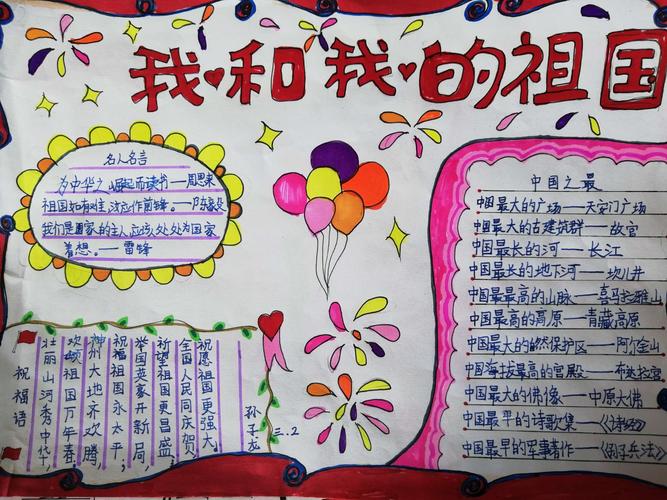 我和我的祖国
名人名言
为中华之崛起而读书——周恩来
祖国如有难,汝应作前锋。——陈毅
我们是国家的主人,应该处处为国家
着想。——雷锋
祝福语
壮丽山河秀中华,
欢颂祖国万年春;
神州大地齐欢腾,
祝福祖国永太平;
举国英豪开新局,
祈望祖国更昌盛;
全国人民同庆贺,
祝愿祖国更强大。
三.2
中国之最
中国最大的广场——天安门广场
中国最大的古建筑群——故宫
中国最长的河——长江
中国最长的地下河——坎儿井
中国最最高的山脉——喜马拉雅山
中国最高的高原——青藏高原
中国最大的自然保护区——阿尔金山
中国海拔最高的宫殿——布达拉宫
中国最大的佛像——中原大佛
中国最早的诗歌集——《诗经》
中国最早的军事著作——《孙子兵法》